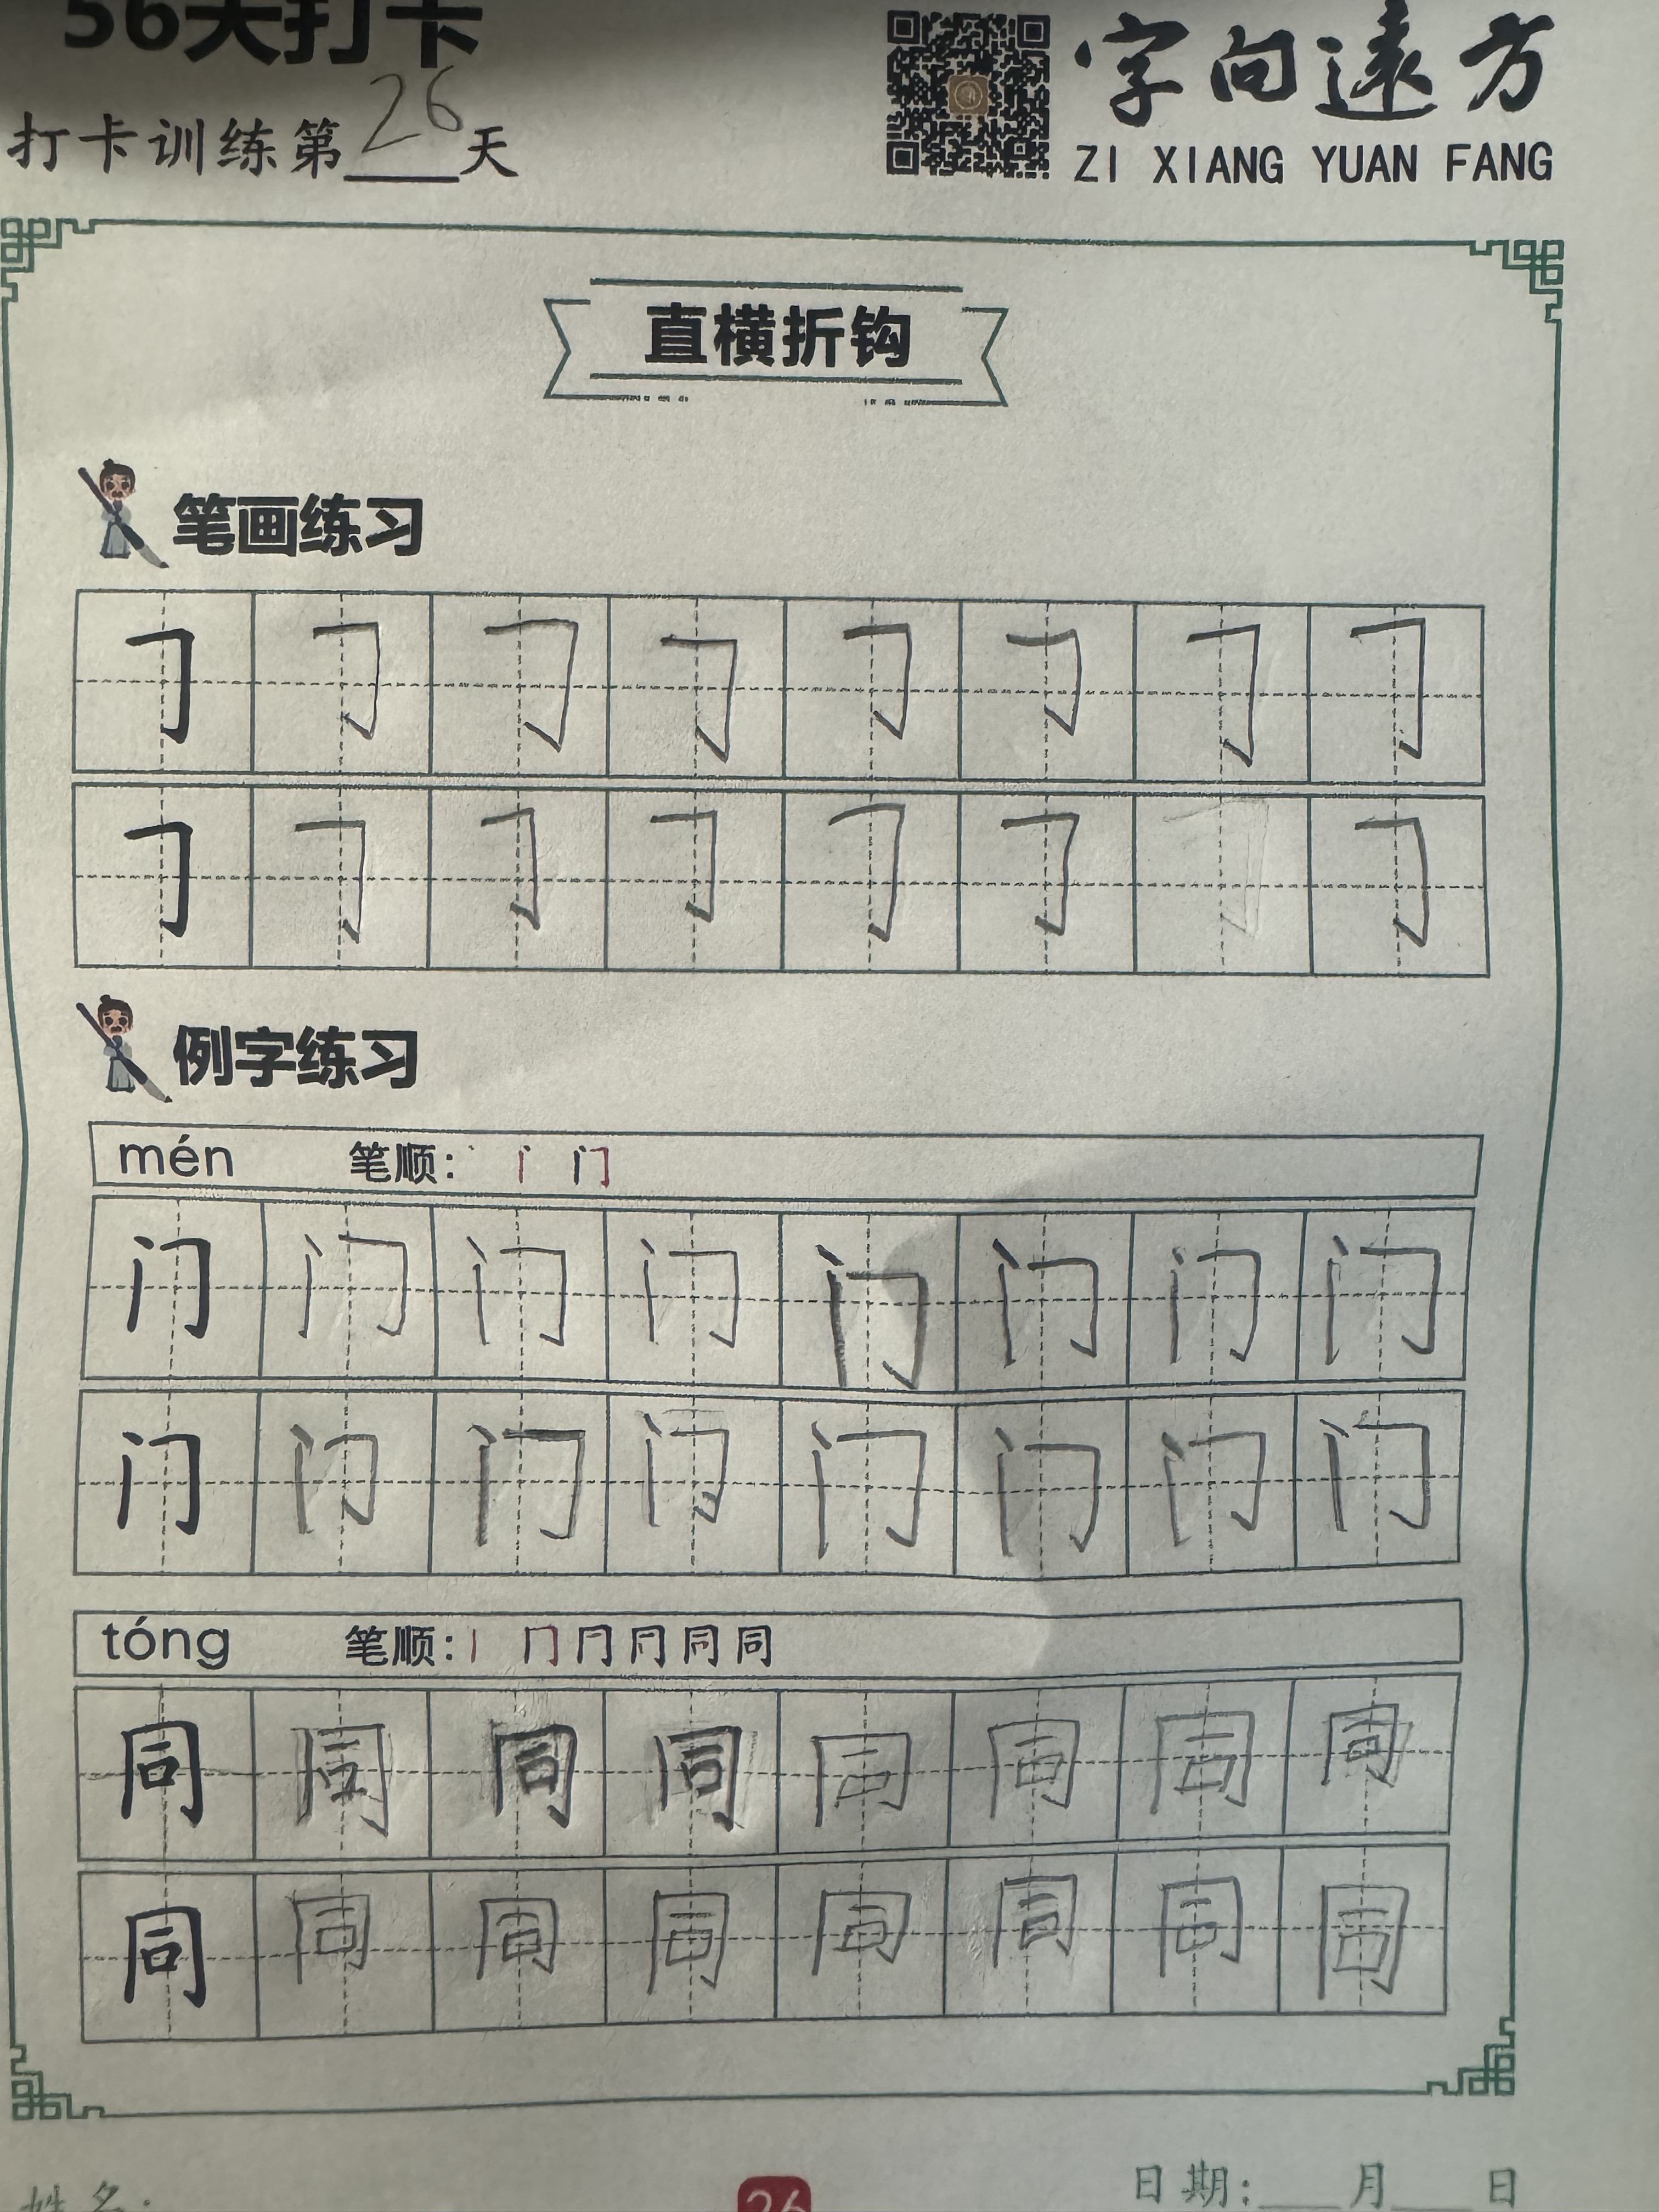 56天打卡
字向遠方
打卡训练第26天
ZI XIANG YUAN FANG
直横折钩
笔画练习
𠃌 𠃌 𠃌 𠃌 𠃌 𠃌 𠃌 𠃌
𠃌 𠃌 𠃌 𠃌 𠃌 𠃌 𠃌 𠃌
例字练习
mén 笔顺: 丶 门
门 门 门 门 门 门 门 门
门 门 门 门 门 门 门 门
tóng 笔顺: 丨 冂 同
同 同 同 同 同 同 同 同
同 同 同 同 同 同 同 同
姓名:
26
日期: 月 日